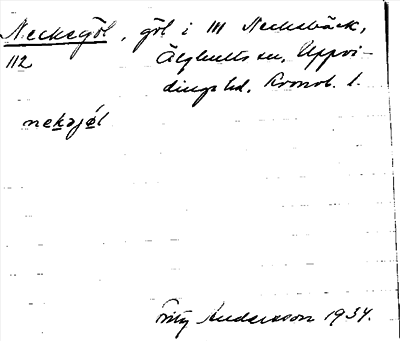 Neckegöl, göl i 111 Neckebäck,
112 Älghults sn, Uppvi-
dinge hd, Kronob. l.
nekəjøl
Andersson 1934.